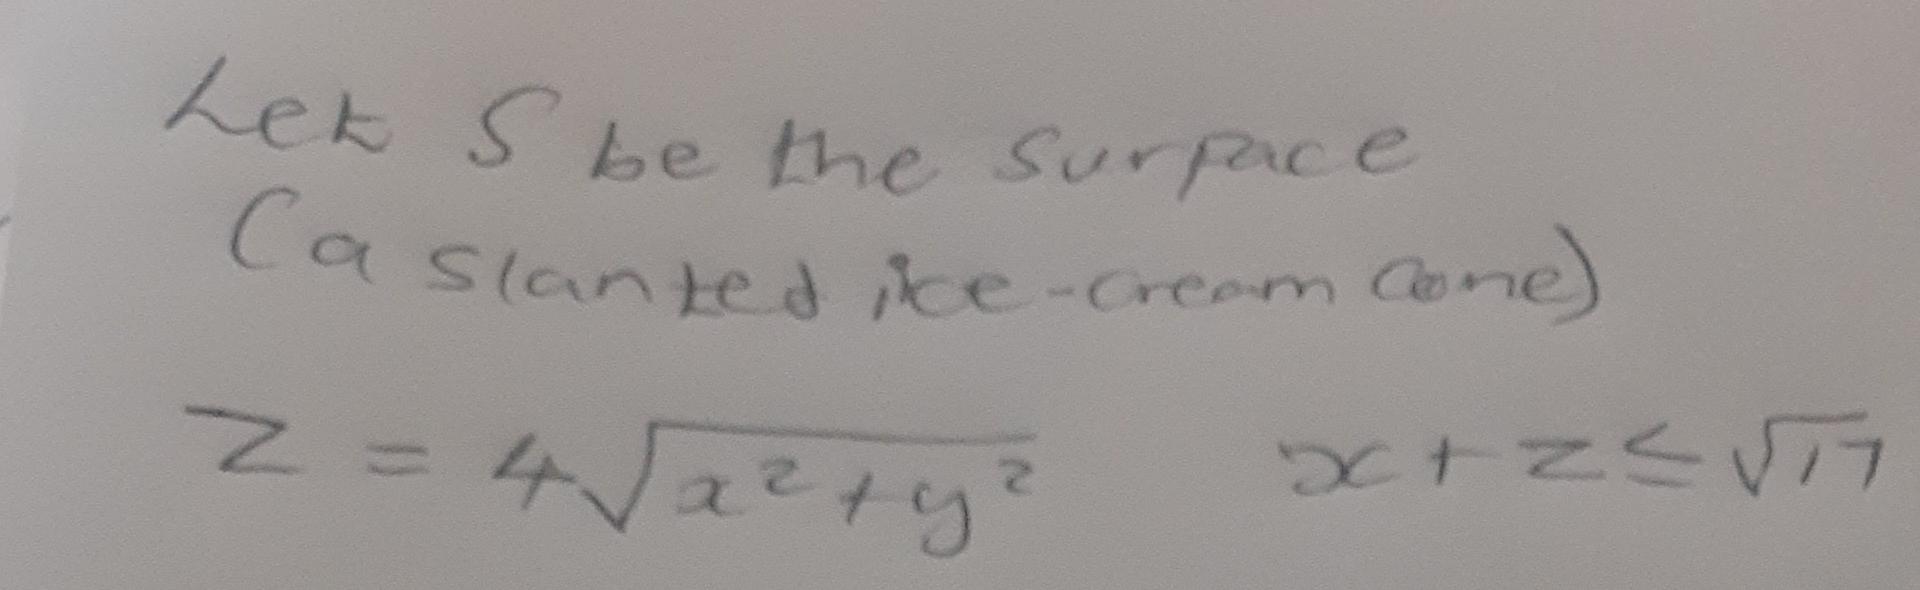 Let S be the surface
(a slanted ice-cream cone)
z = 4√(x² + y²) x + z ≤ √17